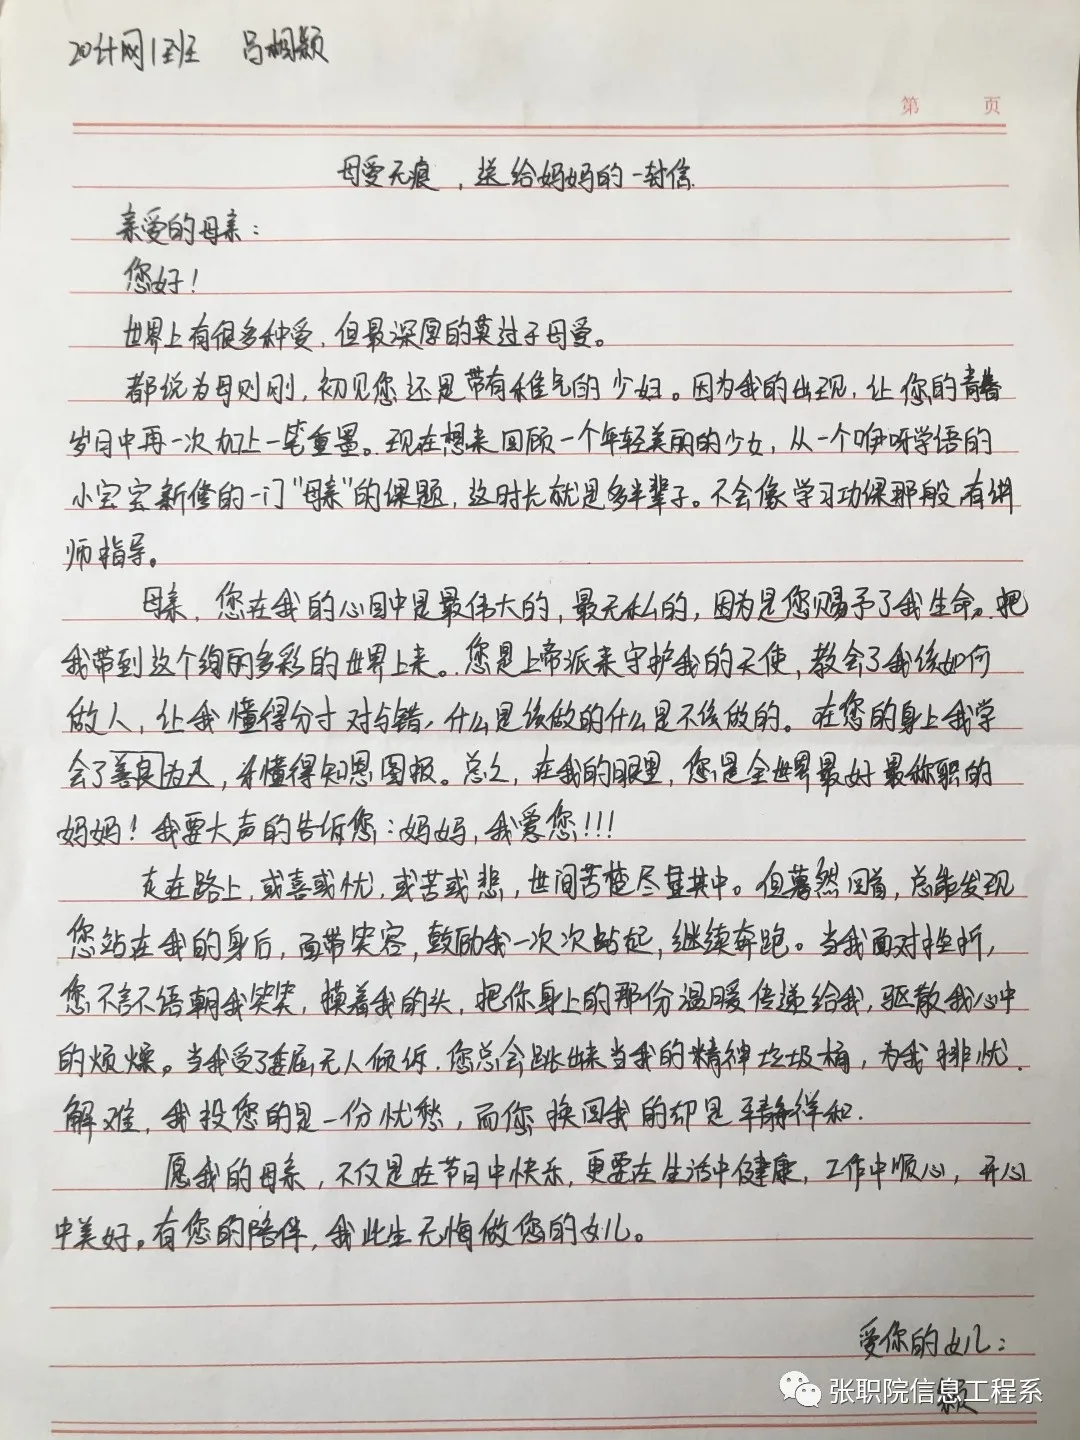 20计网1班 吕相颖
第 页
母爱无痕，送给妈妈的一封信
亲爱的母亲：
您好！
世界上有很多种爱，但最深厚的莫过于母爱。
都说为母则刚，初见您还是带有稚气的少妇。因为我的出现，让您的青春
岁月中再一次加上一笔重量。现在想来回顾一个年轻美丽的少女，从一个咿呀学语的
小宝宝新修的一门“母亲”的课题，这时长就是多半辈子。不会像学习功课那般有讲
师指导。
母亲，您在我的心目中是最伟大的，最无私的，因为是您赐予了我生命。把
我带到这个绚丽多彩的世界上来。您是上帝派来守护我的天使，教会了我该如何
做人，让我懂得分寸对与错，什么是该做的什么是不该做的。在您的身上我学
会了善良为人，并懂得知恩图报。总之，在我的眼里，您是全世界最好最称职的
妈妈！我要大声的告诉您：妈妈，我爱您！！！
走在路上，或喜或忧，或苦或悲，世间苦楚尽显其中。但蓦然回首，总能发现
您站在我的身后，面带笑容，鼓励我一次次站起，继续奔跑。当我面对挫折，
您不言不语朝我笑笑，摸着我的头，把你身上的那份温暖传递给我，驱散我心中
的烦燥。当我受了委屈无人倾诉，您总会跳出来当我的精神垃圾桶，为我排忧
解难，我投您的是一份忧愁，而您换回我的却是平静祥和.
愿我的母亲，不仅是在节日中快乐，更要在生活中健康，工作中顺心，开心
中美好。有您的陪伴，我此生无悔做您的女儿。
爱你的女儿：
颖
张职院信息工程系